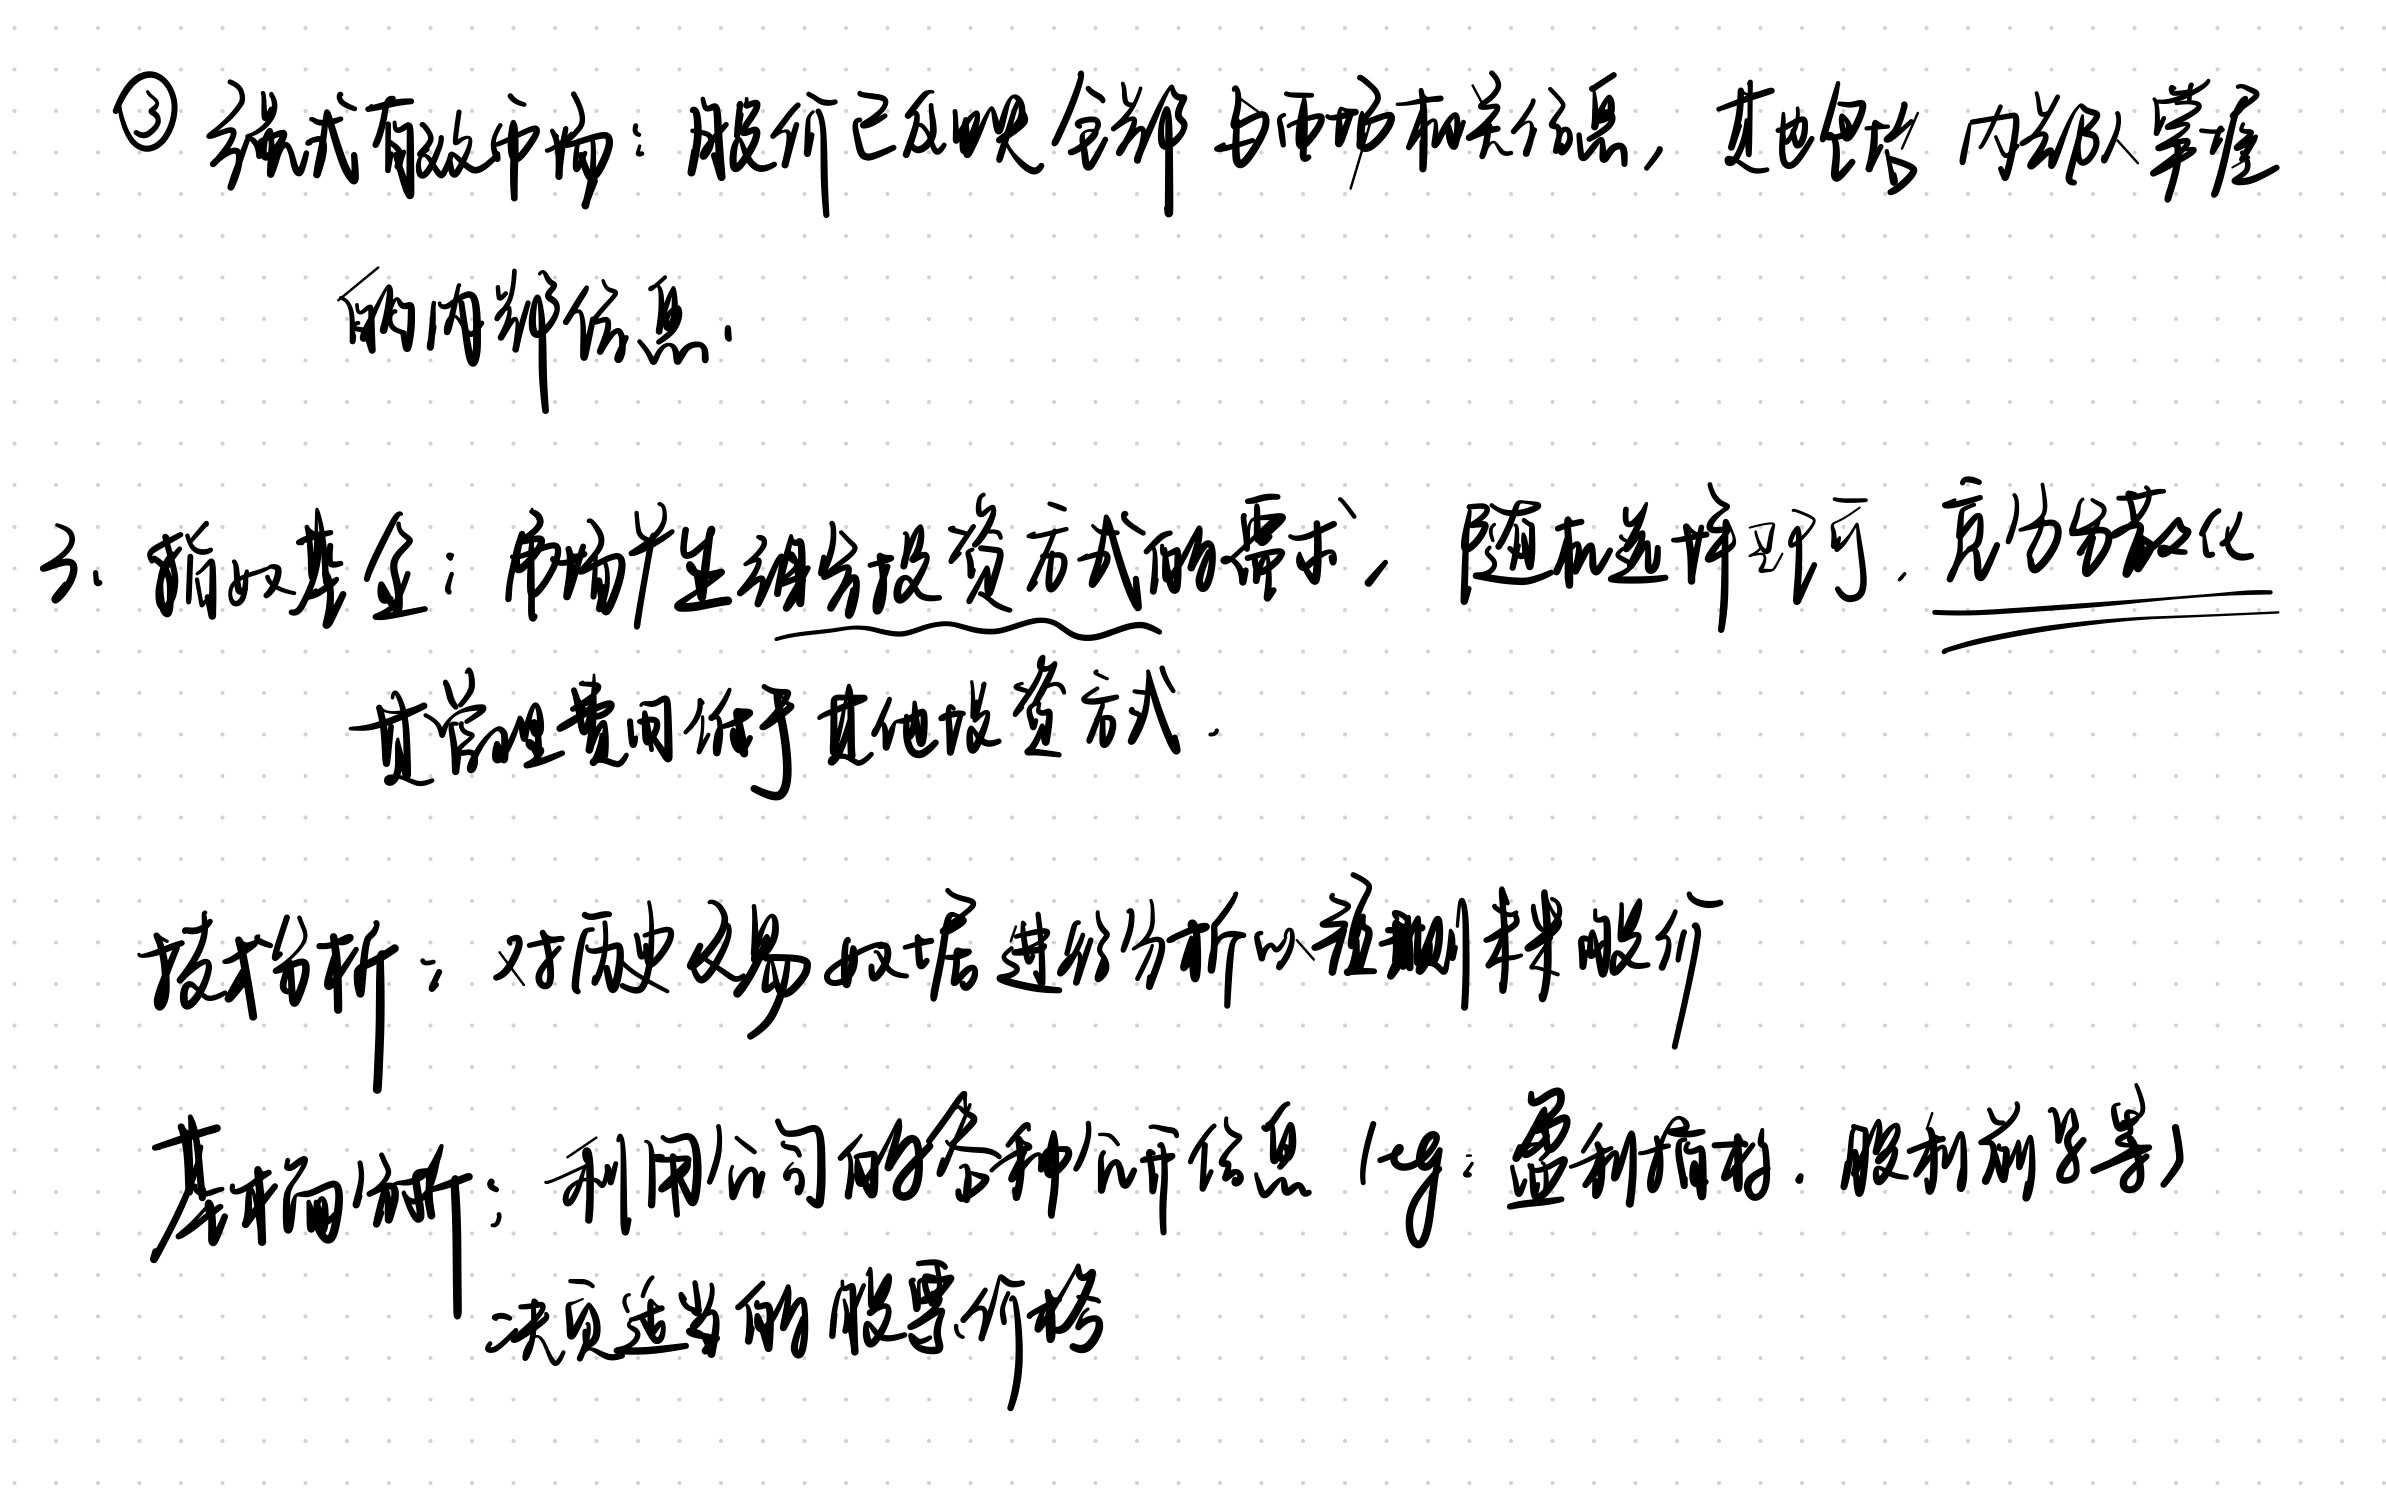 ③ 强式有效市场：股价已包含全部与市场相关信息，甚也包括内部人掌握
的内部信息.
3. 指数基金：有效市场 投资方式的需求，随机选择即可，充分分散化
其管理费用低于其他投资方式.
技术分析：对历史 和发展进行分析以预测未来股价
基本面分析：利用公司的各种公开信息（eg：盈利指标、股利前景等）
决定适当的股票价格